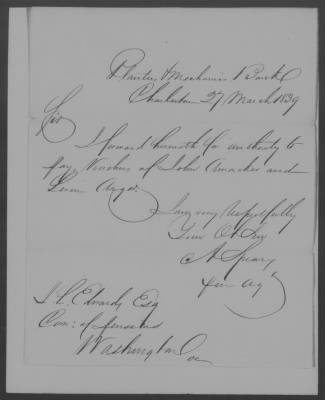 Planters & Mechanics Bank
Charleston 27 March 1839
Sir
I forward herewith for authority to
pay Vouchers of John Amacker and
I am very respectfully
Your Ob Ser
J L Edwards Esq
Com: of Pensions
Washington